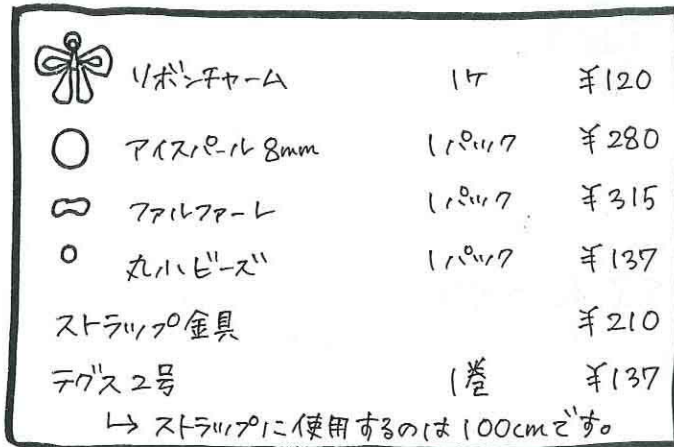 リボンチャーム 1ケ ¥120
アイスパール 8mm 1パック ¥280
ファルファーレ 1パック ¥315
丸小ビーズ 1パック ¥137
ストラップ金具 ¥210
テグス2号 1巻 ¥137
↳ ストラップに使用するのは100cmです。